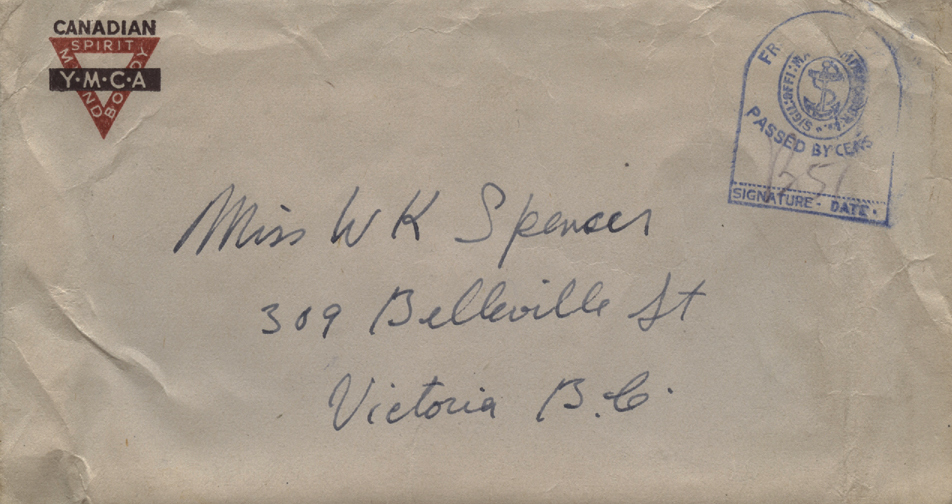 CANADIAN
SPIRIT
MIND
BODY
Y·M·C·A
PASSED BY
SIGNATURE - DATE.
Miss W K Spencer
309 Belleville St
Victoria B.C.